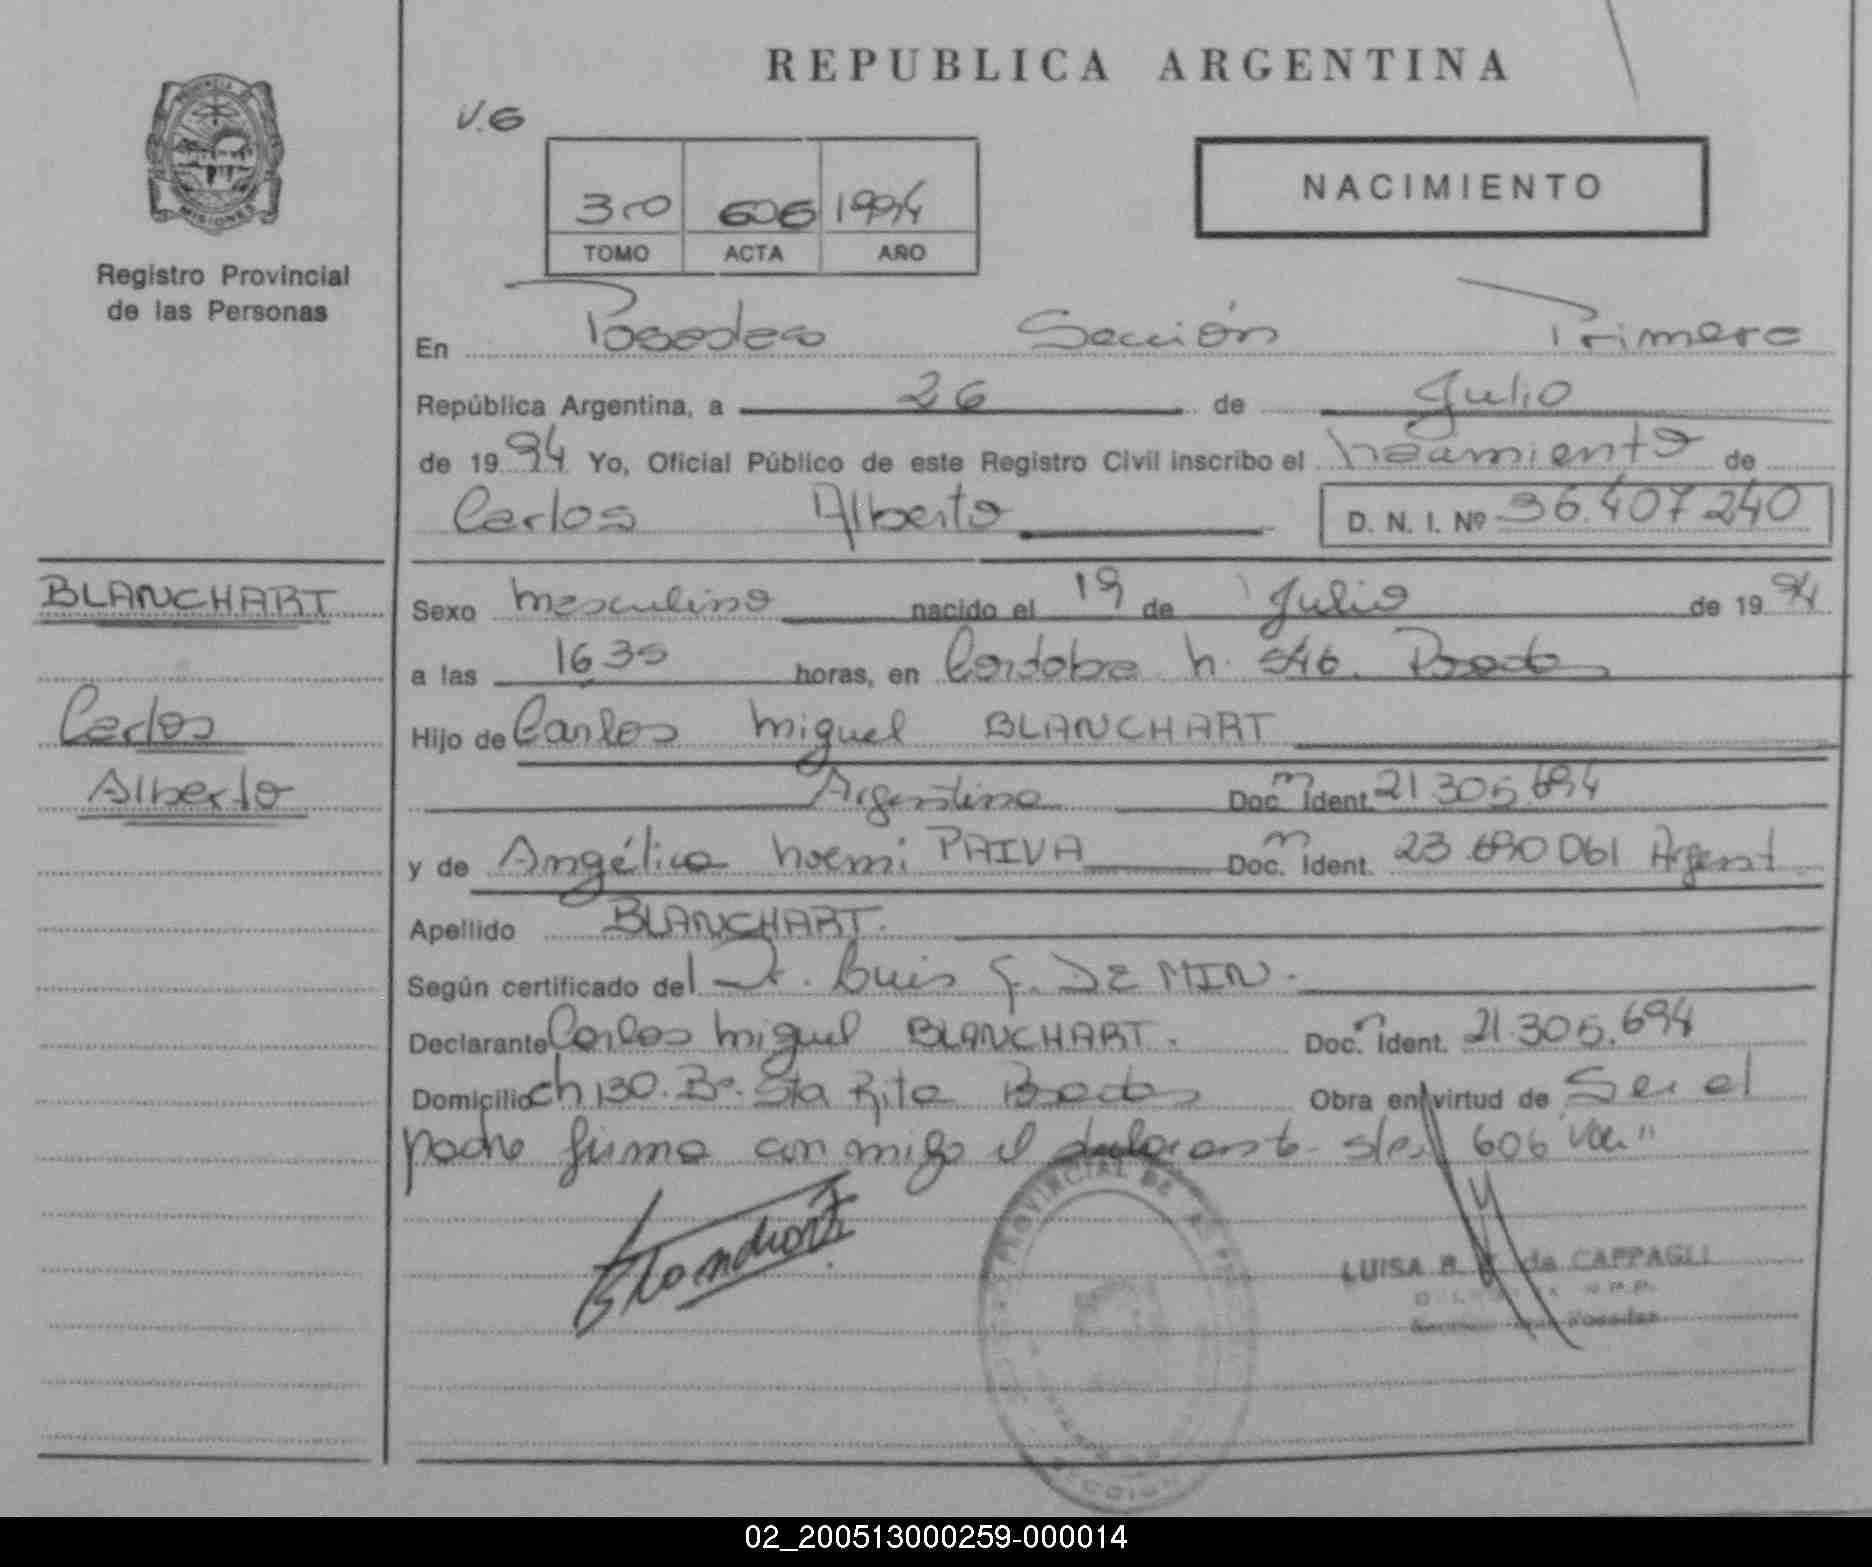 REPUBLICA ARGENTINA
V.6
NACIMIENTO
3ro 606 1994
TOMO ACTA AÑO
PROVINCIA DE
MISIONES
Registro Provincial
de las Personas
En Posadas Sección Primera
República Argentina, a 26 de Julio
de 1994 Yo, Oficial Público de este Registro Civil inscribo el nacimiento de
Carlos Alberto D. N. I. Nº 36.407240
BLANCHART
Carlos
Alberto
Sexo masculino nacido el 19 de Julio de 1994
a las 1635 horas, en Cordoba n. 546. Posadas
Hijo de Carlos Miguel BLANCHART
Argentino Doc. Ident. 21305.694
y de Angélica Noemi PAIVA Doc. Ident. 23.690061 Argent.
Apellido BLANCHART.
Según certificado del Dr. Luis DE MIN.
Declarante Carlos Miguel BLANCHART. Doc. Ident. 21.305.694
Domicilio ch 130. Bº. Sta Rita Posadas Obra en virtud de Ser el
padre firma conmigo el declarante. 606 "Vale"
Blanchart
PROVINCIAL DE
LUISA B. de CAPPAGLI
Posadas
02_200513000259-000014